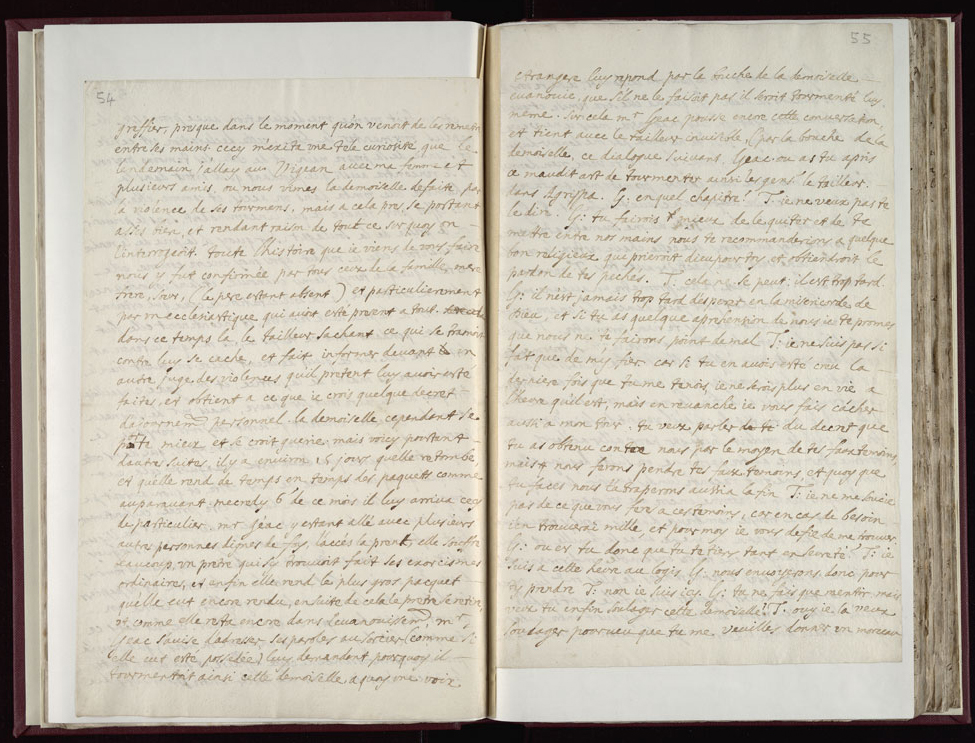 54
greffier, presque dans le moment qu'on venoit de les remettre
entre ses mains cecy m'exita une tele curiosité que le
landemain j'allay au Vigean avec ma femme et
plusieurs amis, ou nous vimes la demoiselle defaite par
la violence de ses tourmens, mais a cela pres, se portant
assés bien, et rendant raison de tout ce sur quoy on
l'interrogeoit. toute l'histoire que ie viens de vous faire
nous y fut confirmée par tous ceux de la famille, mere
frere, seur, (le pere estant absent) et particulierement
par un ecclesiastique qui avoit esté present a tout.
dans ce temps la, le tailleur sachant ce qui se tramoit
contre luy se cache, et fait informer devant un
autre juge, des violences qu'il pretent luy avoir esté
faites, et obtient a ce que ie crois quelque decret
dajournemt personnel. la demoiselle cependant se
porte mieux et se croit guerie. mais voicy pourtant
dautres suites, il y a environ 15 jours quelle retombe,
et quelle rend de temps en temps des paquets comme
auparavant. mecredy 6 de ce mois il luy arriva cecy
de particulier. mr Geac y estant allé avec plusieurs
autres personnes dignes de foy, l'accés la prent, elle souffre
beaucoup, un prétre qui s'y trouvoit fait ses exorcismes
ordinaires, et enfin elle rend le plus gros paquet
qu'elle eut encore rendu, en suite de cela le prétre se retire,
et comme elle resta encore dans l'evanouissemt, mr
Geac s'avise d'adresser ses paroles au sorcier (comme si
elle eut esté possedée) luy demandant pourquoy il
tourmentoit ainsi cette demoiselle, a quoy une voix
55
etrangere luy repond par la bouche de la demoiselle
evanouie, que s'il ne le faisoit pas il seroit tourmenté luy
meme. Sur cela mr Geac pousse encore cette conversation
et tient avec le tailleur invisible, (par la bouche de la
demoiselle, ce dialogue suivant. Geac. ou as tu apris
ce maudit art de tourmenter ainsi les gens? le tailleur.
dans Agrippa. G: en quel chapitre? T: ie ne veux pas te
le dire. G: tu fairois mieux de le quiter et de te
mettre entre nos mains nous te recommanderions a quelque
bon religieux qui prieroit dieu pour toy, et obtiendroit le
pardon de tes pechés. T: cela ne se peut: il est trop tard
G: il n'est jamais trop tard desperer en la misericorde de
Dieu, et si tu as quelque aprehension de nous ie te promes
que nous ne te fairons point de mal. T: ie ne suis pas si
fait que de m'y fier. car si tu en avois esté creu la
derniere fois que tu me tenois, ie ne serois plus en vie a
l'heure qu'il est, mais en revanche ie vous fais cacher
aussi a mon tour. tu veux parler de te du decret que
tu as obtenu contre nous par le moyen de tes faux temoins,
mais nous ferons pendre tes faux temoins et quoy que
tu faces nous t'atraperons aussi a la fin. T: ie ne me soucie
pas de ce que vous fere a ces temoins, car en cas de besoin
i'en trouverai mille et pour moy ie vous defie de me trouver
G: ou es tu donc que tu te tiens tant en secret? T: ie
suis a celle heure au logis. G: nous envoyerons donc pour
t'y prendre T: non ie suis icy. G: tu ne fais que mentir mais
veux tu enfin soulager cette demoiselle? T. ouy ie la veux
soulager pourveu que tu me veuilles donner un morceau